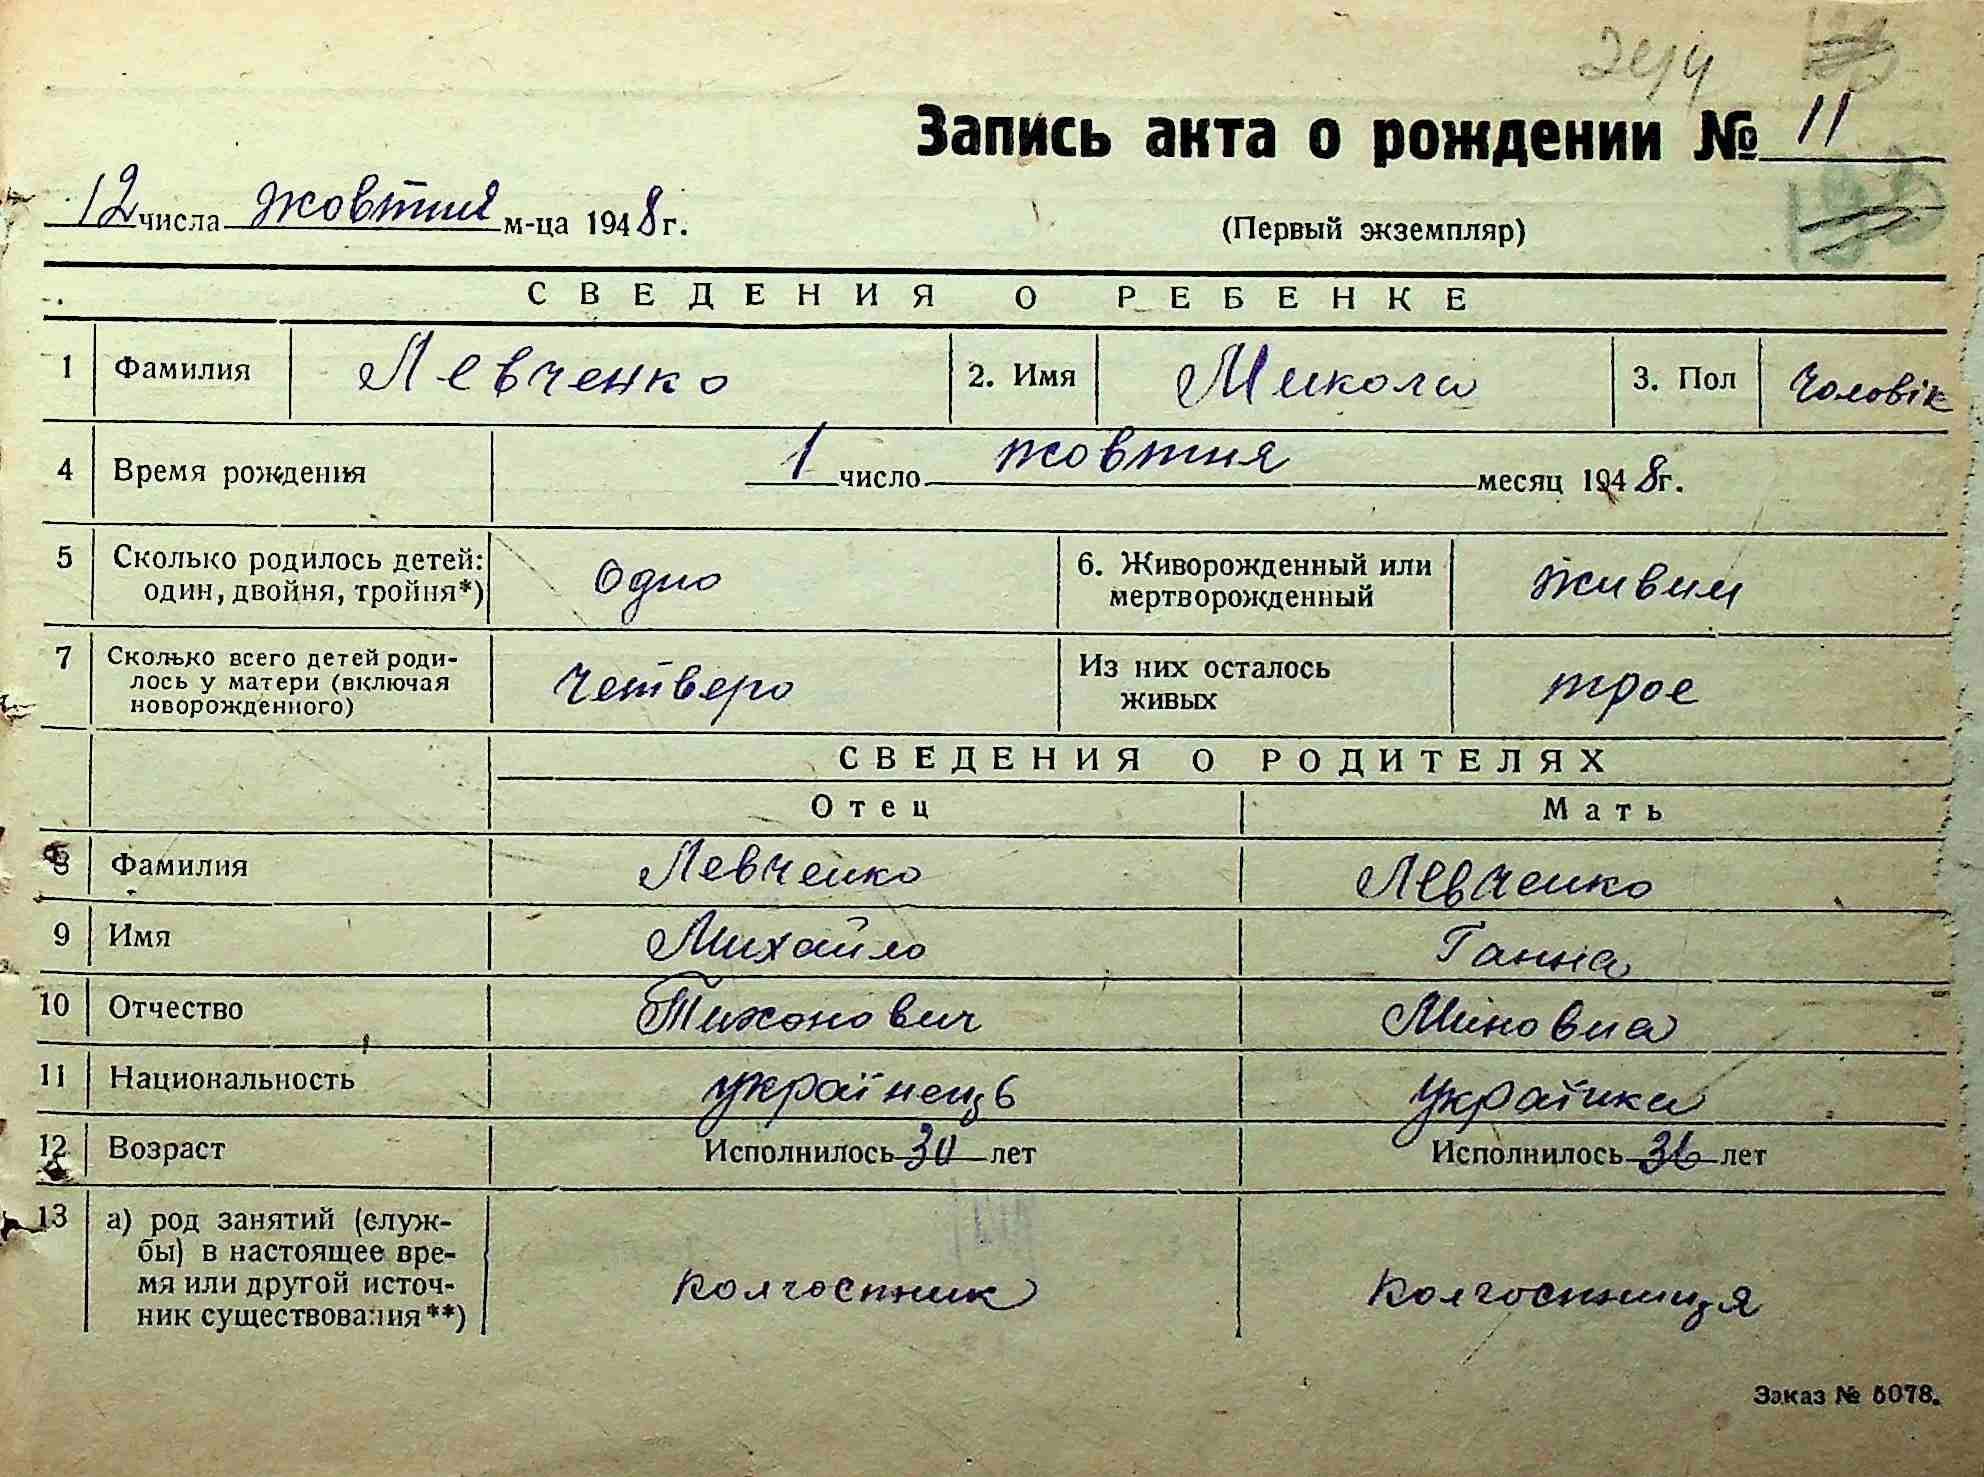 Запись акта о рождении № 11
12 числа жовтня м-ца 1948 г.
(Первый экземпляр)
СВЕДЕНИЯ О РЕБЕНКЕ
1 Фамилия Левченко 2. Имя Микола 3. Пол Чоловік
4 Время рождения 1 число жовтня месяц 1948 г.
5 Сколько родилось детей: один, двойня, тройня*) Одно 6. Живорожденный или мертворожденный живим
7 Сколько всего детей роди-
лось у матери (включая
новорожденного) Четверо Из них осталось живых трое
СВЕДЕНИЯ О РОДИТЕЛЯХ
Отец Мать
8 Фамилия Левченко Левченко
9 Имя Михайло Ганна
10 Отчество Тихонович Міновна
11 Национальность українець українка
12 Возраст Исполнилось 30 лет Исполнилось 36 лет
13 а) род занятий (служ-
бы) в настоящее вре-
мя или другой источ-
ник существования**) колгоспник колгоспниця
Заказ № 5078.